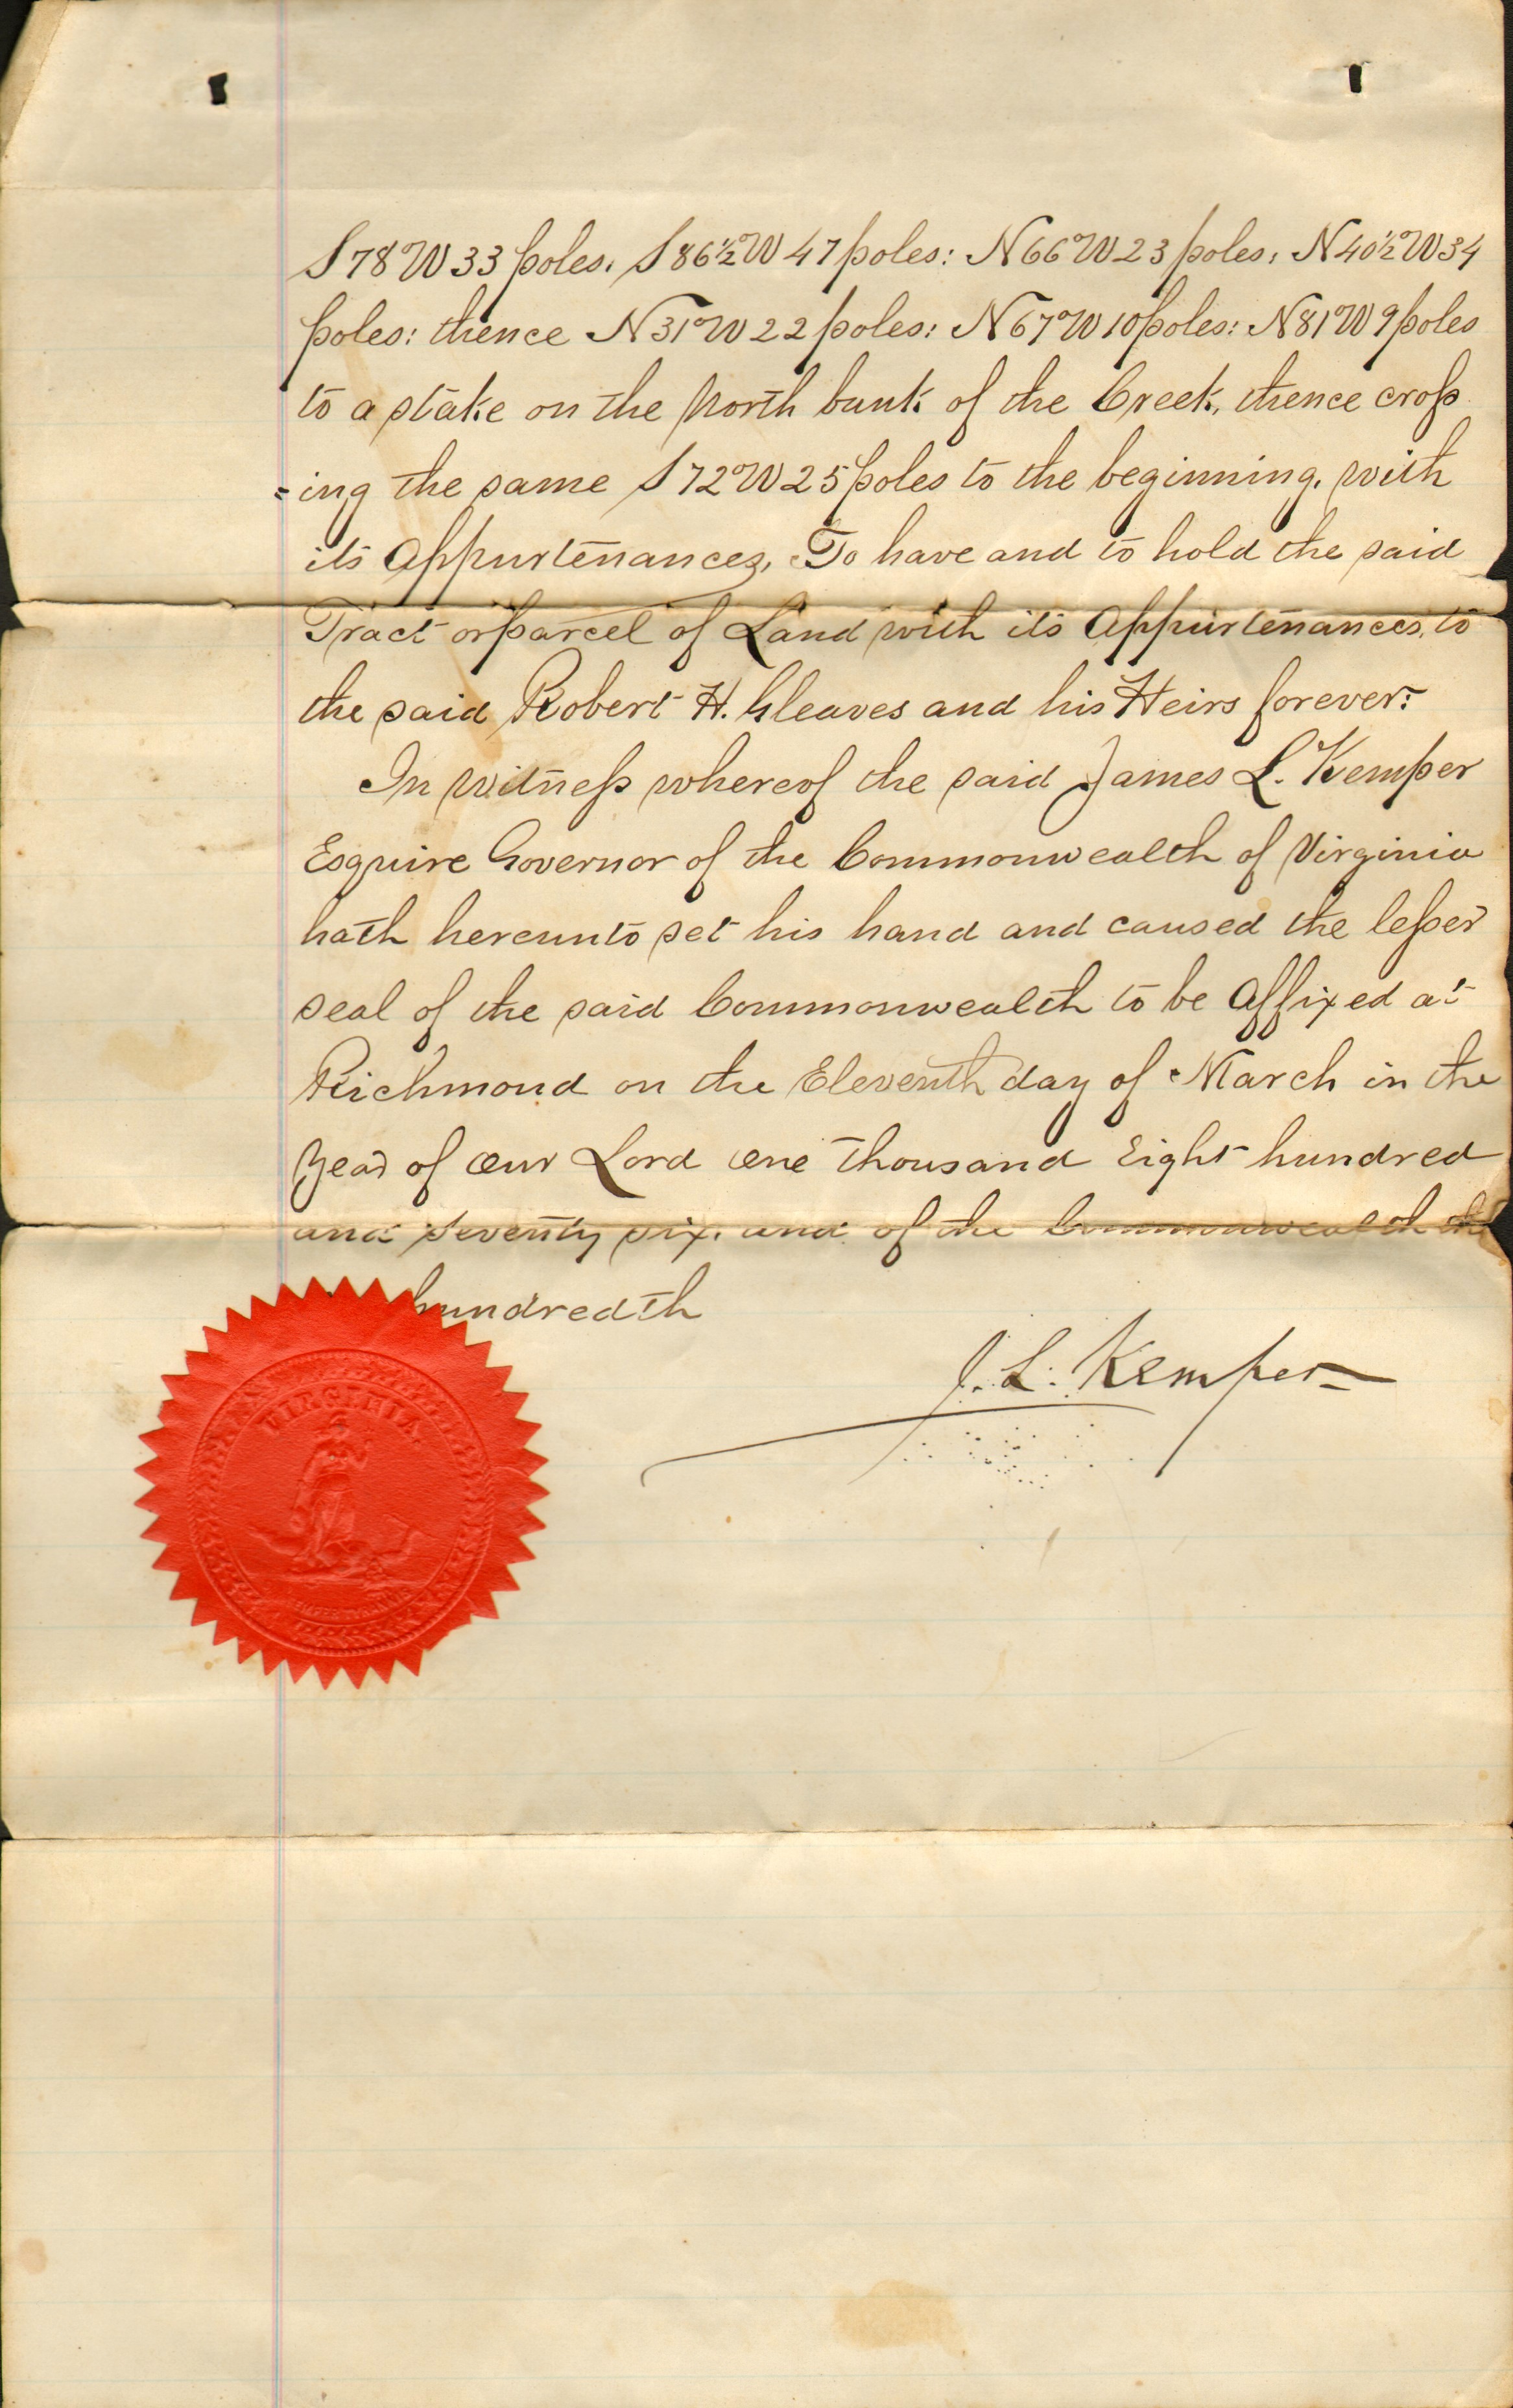 S 78° W 33 poles. S 86½° W 47 poles: N 66° W 23 poles: N 40½° W 34
poles: thence N 31° W 22 poles: N 67° W 10 poles: N 81° W 9 poles
to a stake on the North bank of the Creek, thence cross
=ing the same S 72° W 25 poles to the beginning, with
its Appurtenances, To have and to hold the said
Tract or parcel of Land with its Appurtenances, to
the said Robert H. Gleaves and his Heirs forever:
In Witness whereof the said James L. Kemper
Esquire Governor of the Commonwealth of Virginia
hath hereunto set his hand and caused the lesser
seal of the said Commonwealth to be affixed at
Richmond on the Eleventh day of March in the
Year of our Lord one thousand Eight hundred
and seventy six, and of the Commonwealth the
hundredth
J. L. Kemper
VIRGINIA